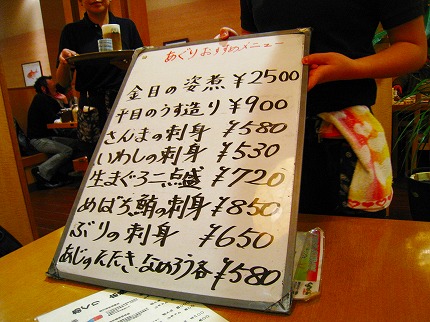 あぐりおすすめメニュー
金目の姿煮 ¥2500
平目のうす造り ¥900
さんまの刺身 ¥580
いわしの刺身 ¥530
生まぐろ二点盛 ¥720
めばち鮪の刺身 ¥850
ぶりの刺身 ¥650
あじのたたき・なめろう各 ¥580